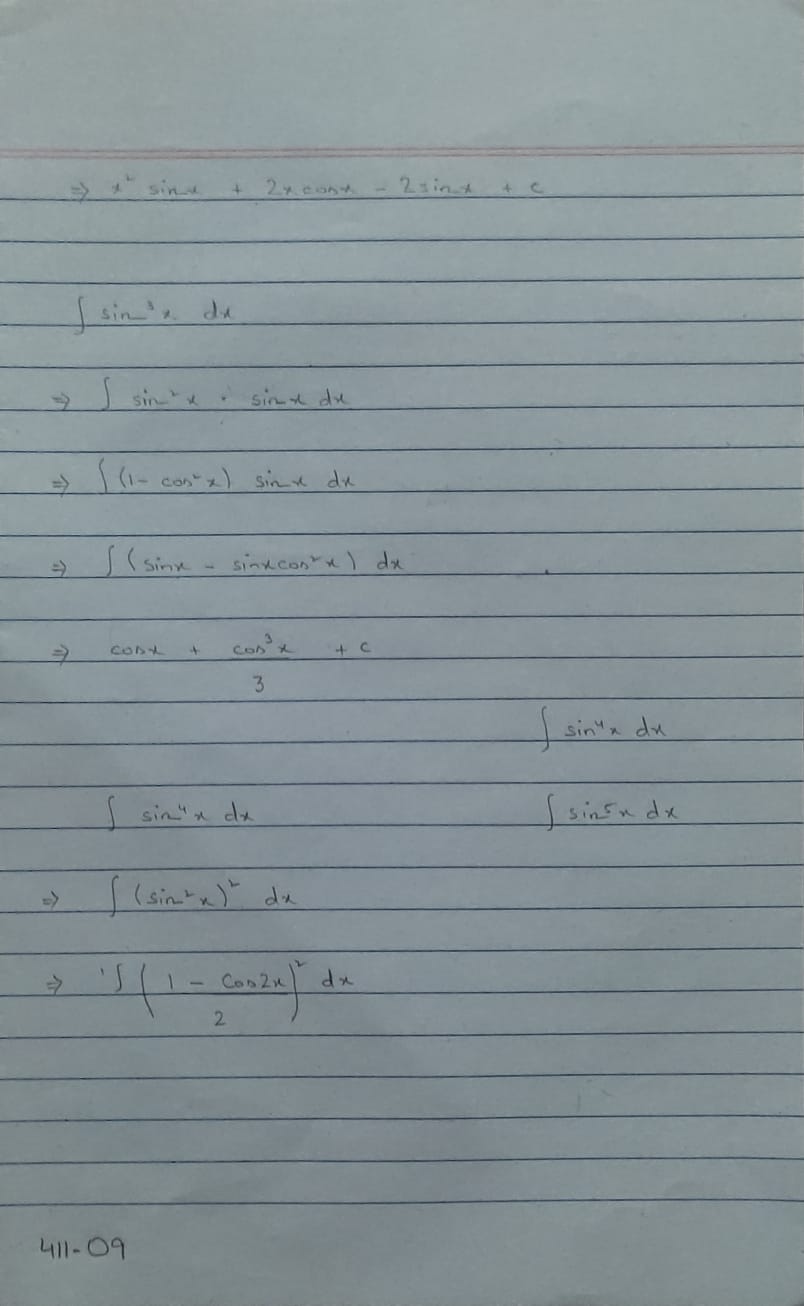 ⇒ x² sinx + 2x cosx - 2sinx + c
∫ sin³x dx
⇒ ∫ sin²x · sinx dx
⇒ ∫ (1 - cos²x) sinx dx
⇒ ∫ (sinx - sinxcos²x) dx
⇒ cosx + cos³x + c
3
∫ sin⁴x dx
∫ sin⁴x dx ∫ sin⁵x dx
⇒ ∫ (sin²x)² dx
⇒ ∫ (1 - Cos2x)² dx
2
411-09